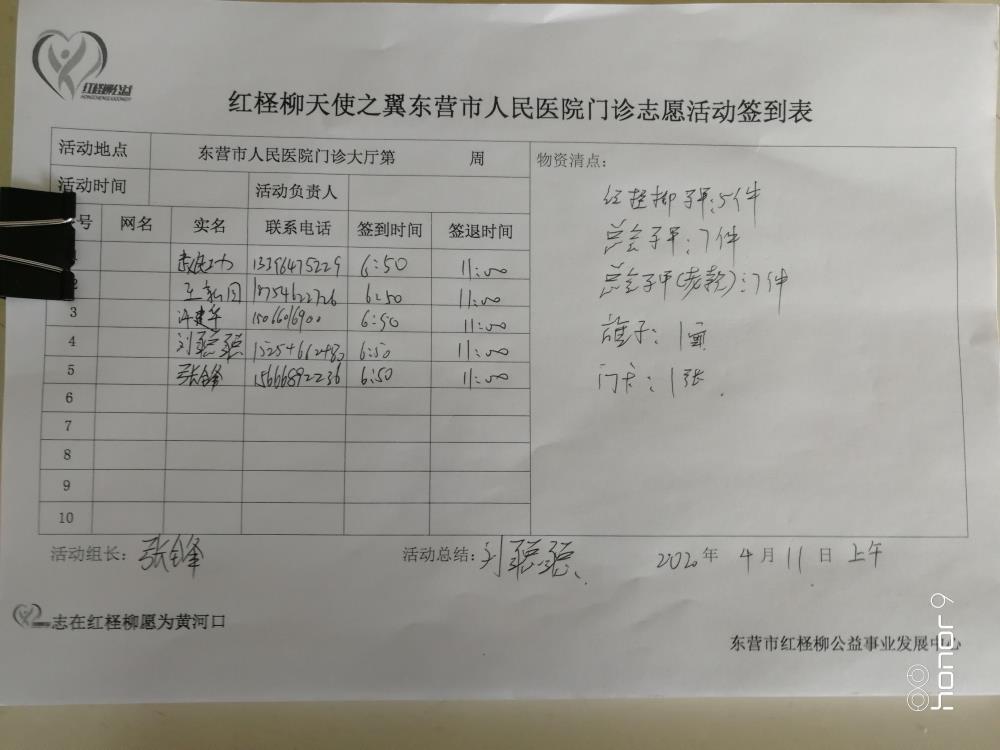 红柽柳公益
HONGCHENGLIUGONGYI
红柽柳天使之翼东营市人民医院门诊志愿活动签到表
活动地点 东营市人民医院门诊大厅第 周 物资清点：
活动时间 活动负责人
号 网名 实名 联系电话 签到时间 签退时间
红柽柳马甲：5件
总会马甲：7件
总会马甲(老款)：7件
旗子：1面
门卡：1张
13396475229 6:50 11:00
2 王新国 18754622726 6:50 11:00
3 许建华 1506616900 6:50 11:00
4 刘聪聪 6:50 11:00
5 张锋 15666892236 6:50 11:00
6
7
8
9
10
活动组长：张锋 活动总结：刘聪聪 2020年4月11日 上午
志在红柽柳愿为黄河口
东营市红柽柳公益事业发展中心
honor 9